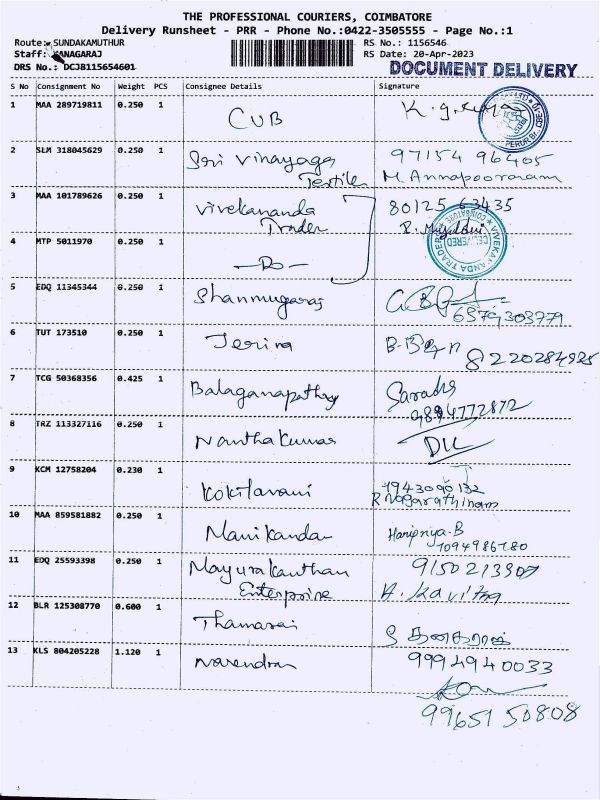 THE PROFESSIONAL COURIERS, COIMBATORE
Delivery Runsheet - PRR - Phone No.:0422-3505555 - Page No.:1
Route: SUNDAKAMUTHUR RS No.: 1156546
Staff: KANAGARAJ RS Date: 20-Apr-2023
DRS No.: DCJ8115654601 DOCUMENT DELIVERY
S No Consignment No Weight PCS Consignee Details Signature
1 MAA 289719811 0.250 1 CUB K. g. Kumar
2 SLM 318045629 0.250 1 Sri Vinayaga 97154 96405
Textiles M. Annapooranam
3 MAA 101789626 0.250 1 Vivekananda 80125 63435
Trader
DELIVERED
VIVEKANANDA TRADERS
COIMBATORE
4 MTP 5011970 0.250 1 —Do—
5 EDQ 11345344 0.250 1 Shanmugaraj
6379303779
6 TUT 173510 0.250 1 Jerina 8220284925
7 TCG 50368356 0.425 1 Balaganapathy
9894772872
8 TRZ 113327116 0.250 1 Nanthakumar
9 KCM 12758204 0.230 1 Kokilavani
R Nagarathinam
10 MAA 859581882 0.250 1 Manikandan Haripriya-B
11 EDQ 25593398 0.250 1 Mayurakanthan
Enterprise A. Kavitha
12 BLR 125308770 0.600 1 Thamarai
13 KLS 804205228 1.120 1 Narendran 9994940033
99651 50808